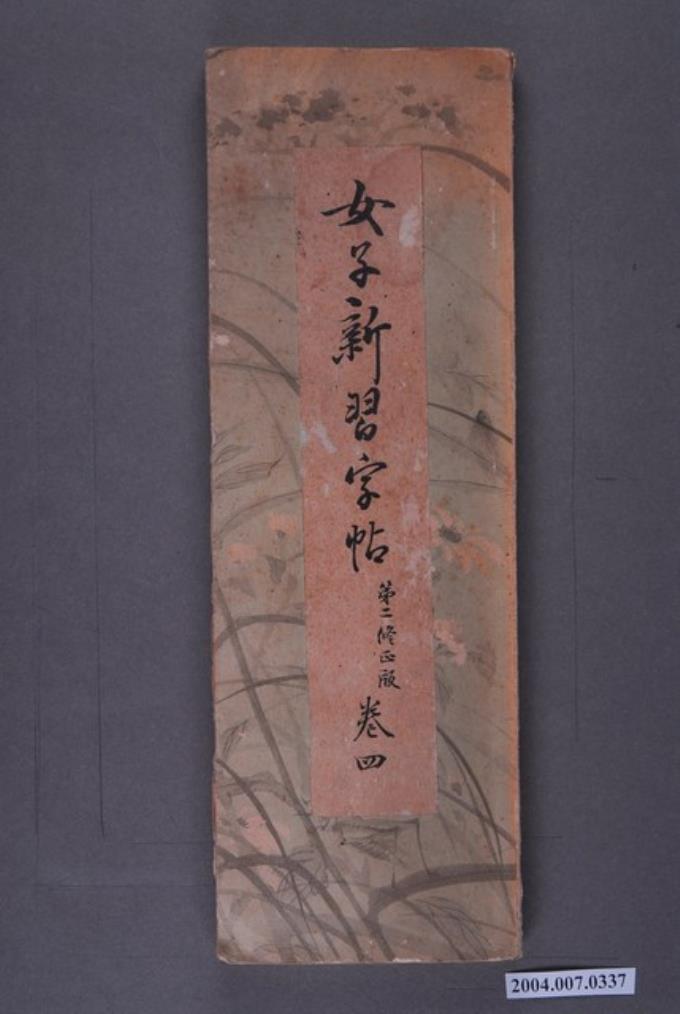 女子新習字帖
第二修正版
卷四
2004.007.0337